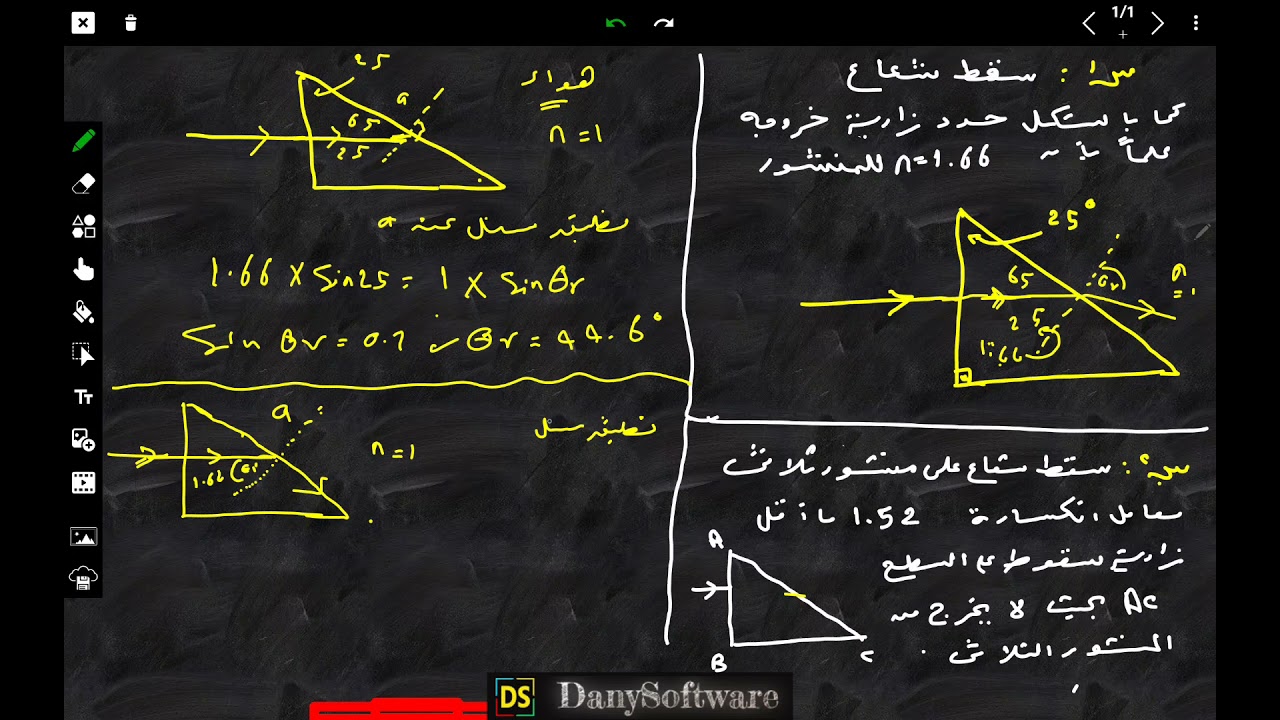 1/1
س١ : سقط شعاع
كما بالشكل حدد زاوية خروجه
علماً بأن n=1.66 للمنشور
25°
65
θr
n=1
25
1.66
س٢ : سقط شعاع على منشور ثلاثي
معامل انكساره 1.52 ما أقل
زاوية سقوط على السطح
AC بحيث لا يخرج من
المنشور الثلاثي .
A
B
C
25
هواء
n=1
a
65
25
تطبيق سنل عند a
1.66 × Sin25 = 1 × Sinθr
Sin θr = 0.7 θr = 44.6°
a
n=1
1.66
تطبيق سنل
DS DanySoftware